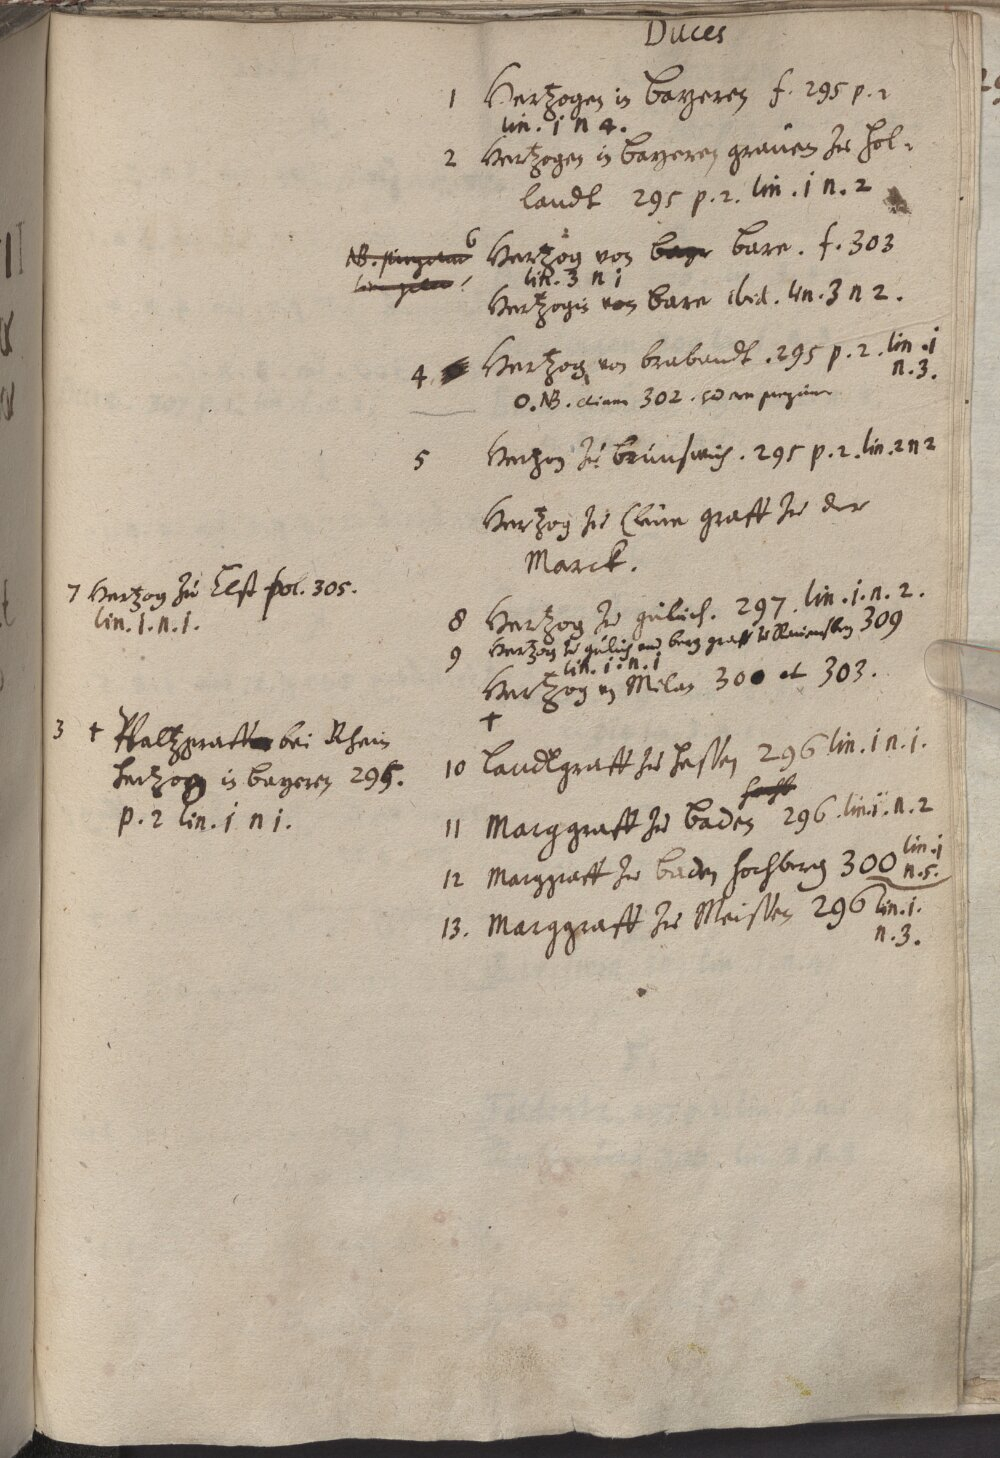 Duces
1 Hertzogen in bayeren f. 295 p. 2
lin. i n 4.
2 Hertzogen in bayeren graven zu Hol-
landt 295 p. 2. lin. i n. 2
NB.
6 Hertzog von bare. f. 303
lin. 3 n i
Hertzogin von bare ibid. lin. 3 n 2.
4 Hertzog von brabandt. 295 p. 2. lin. i
n. 3.
O. NB. etiam 302.
5 Hertzog zu brunswich. 295 p. 2. lin. 2 n 2
Hertzog zu Cleve graff zu der
Marck.
7 Hertzog zu Elst fol. 305.
lin. 1. n. 1.
8 Hertzog zu gulich. 297. lin. i. n. 2.
9 Hertzog zu gulich und berg graff zu Ravensberg 309
lin. i. n. i
Hertzog in Milan 300 et 303.
†
3 † Paltzgraff bei Rhein
Hertzog in bayeren 295.
p. 2 lin. i n i.
10 Landtgraff zu Hessen 296 lin. i n. i.
11 Marggraff zu baden 296. lin. i. n. 2
12 Marggraff zu baden Hochberg 300 lin. i
n. 5.
13. Marggraff zu Meissen 296 lin. i.
n. 3.